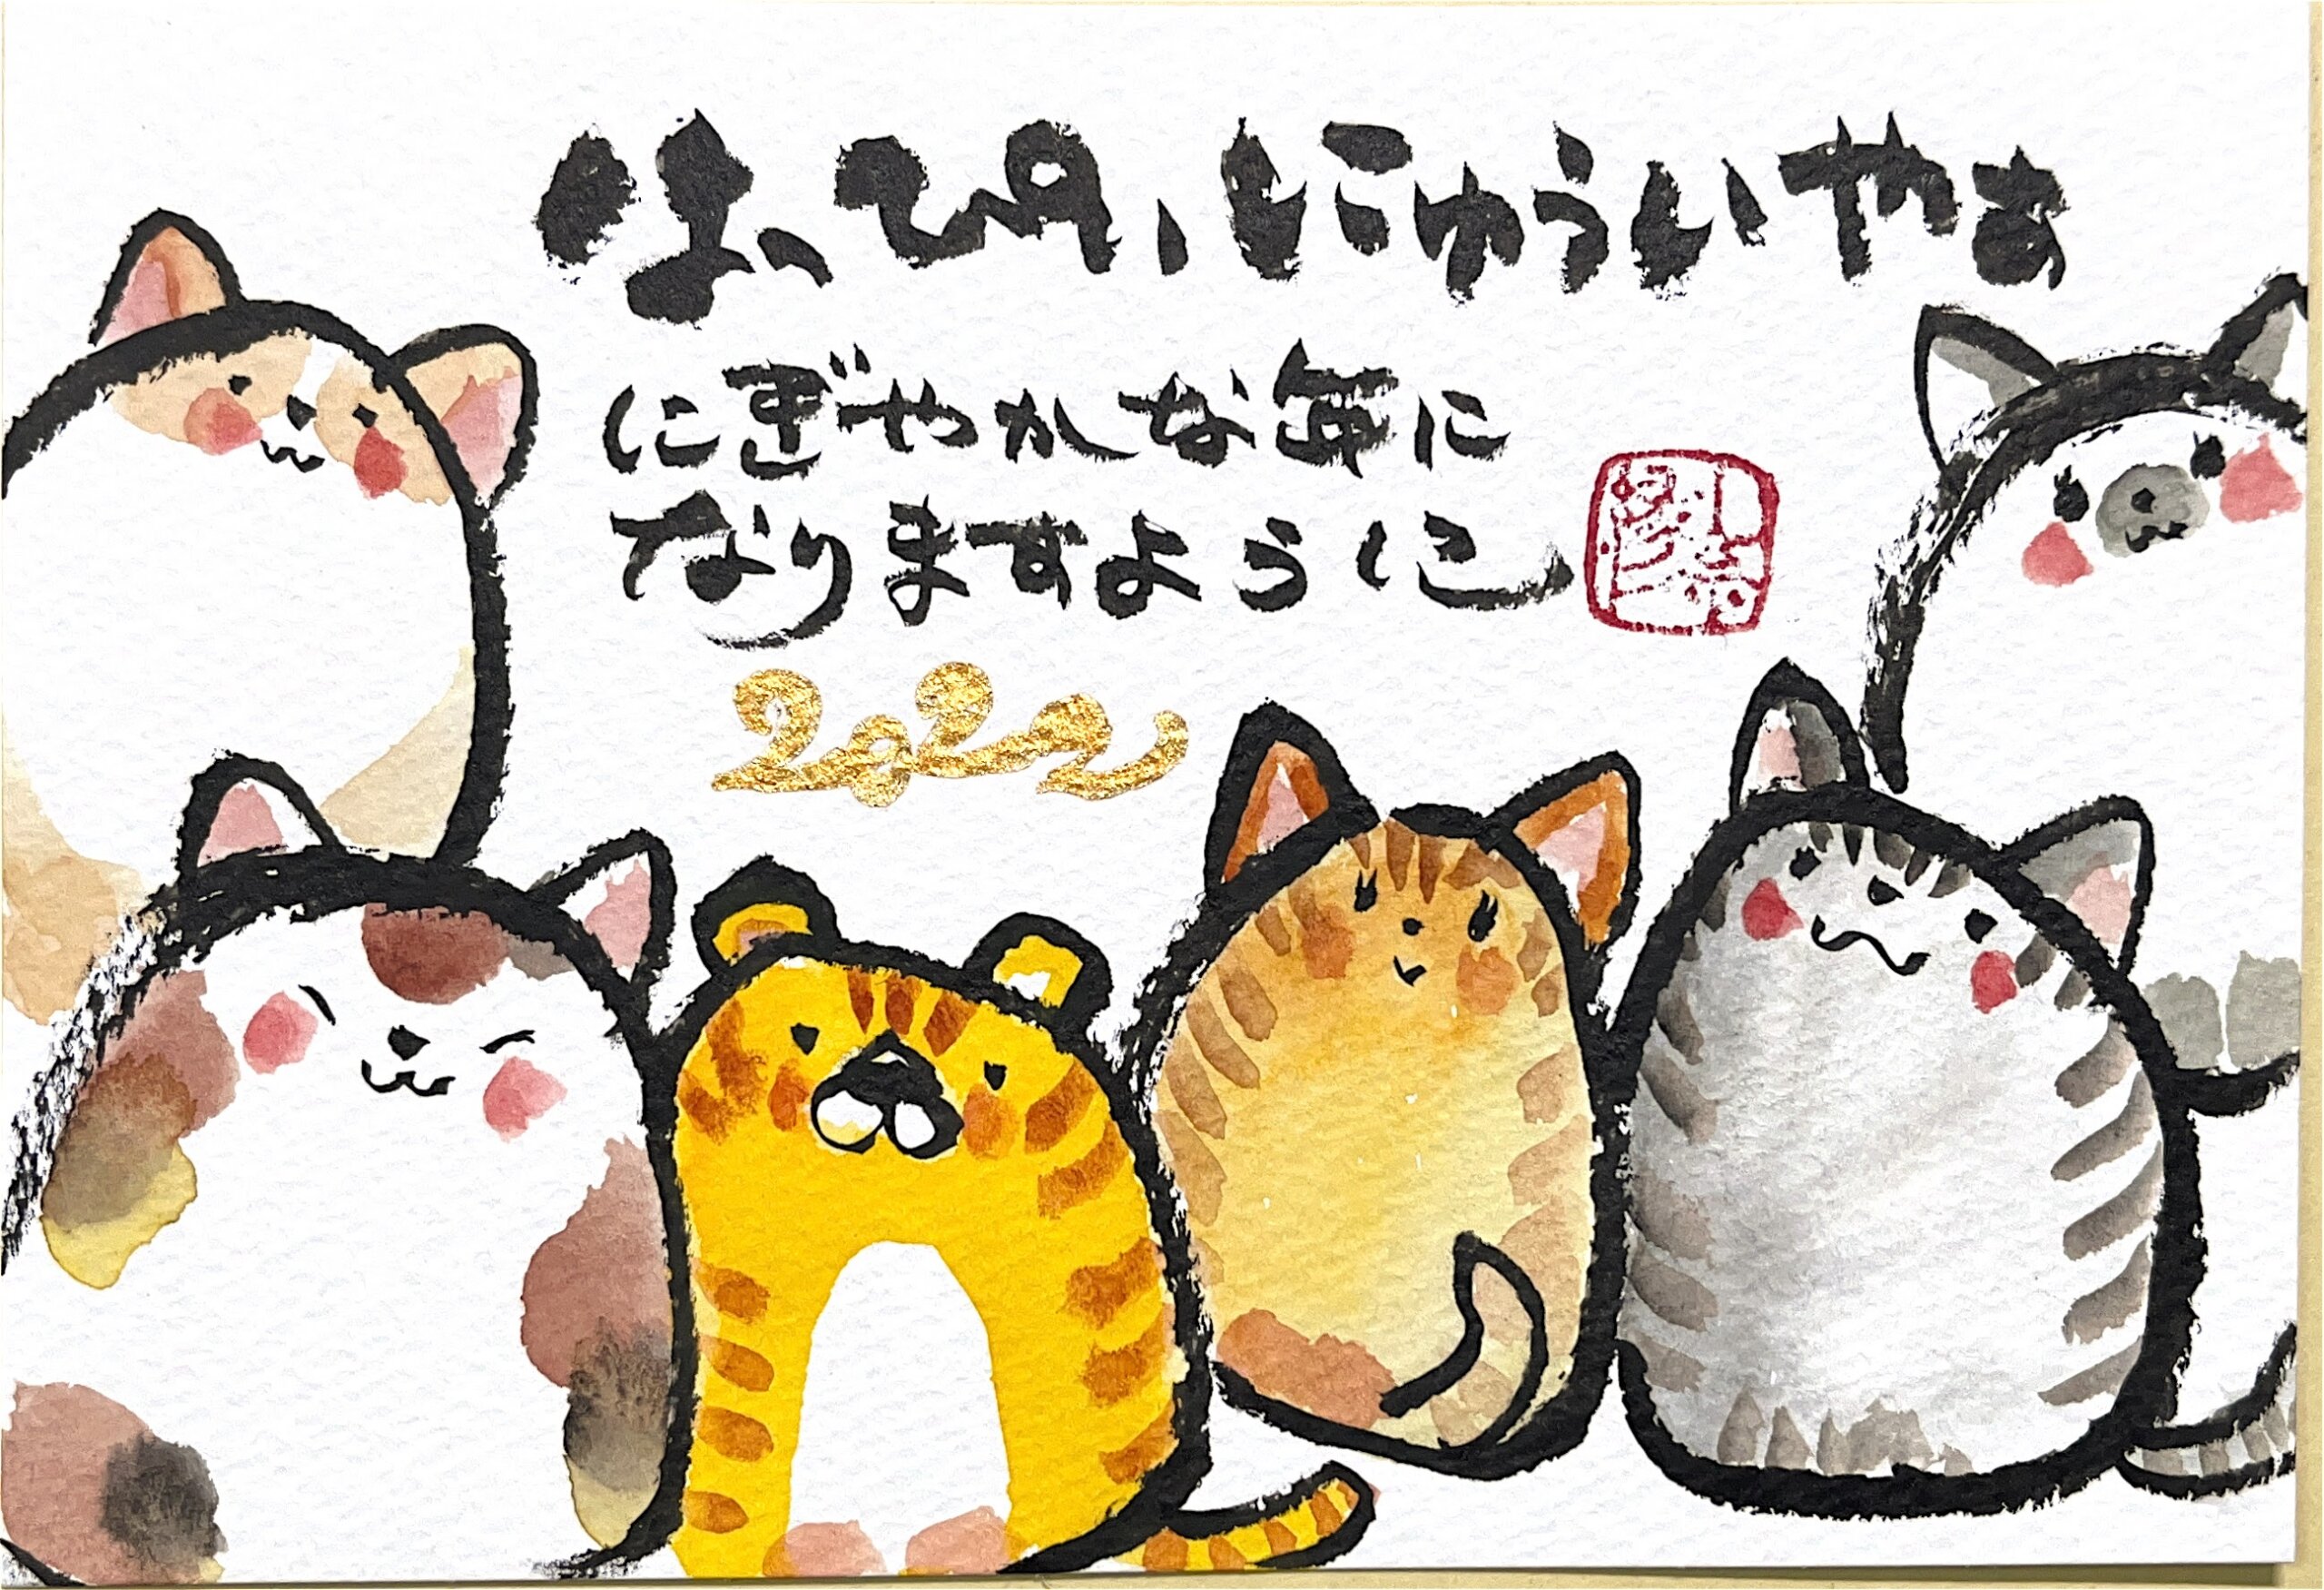 はっぴぃにゅういやぁ
にぎやかな年に
なりますように
2022